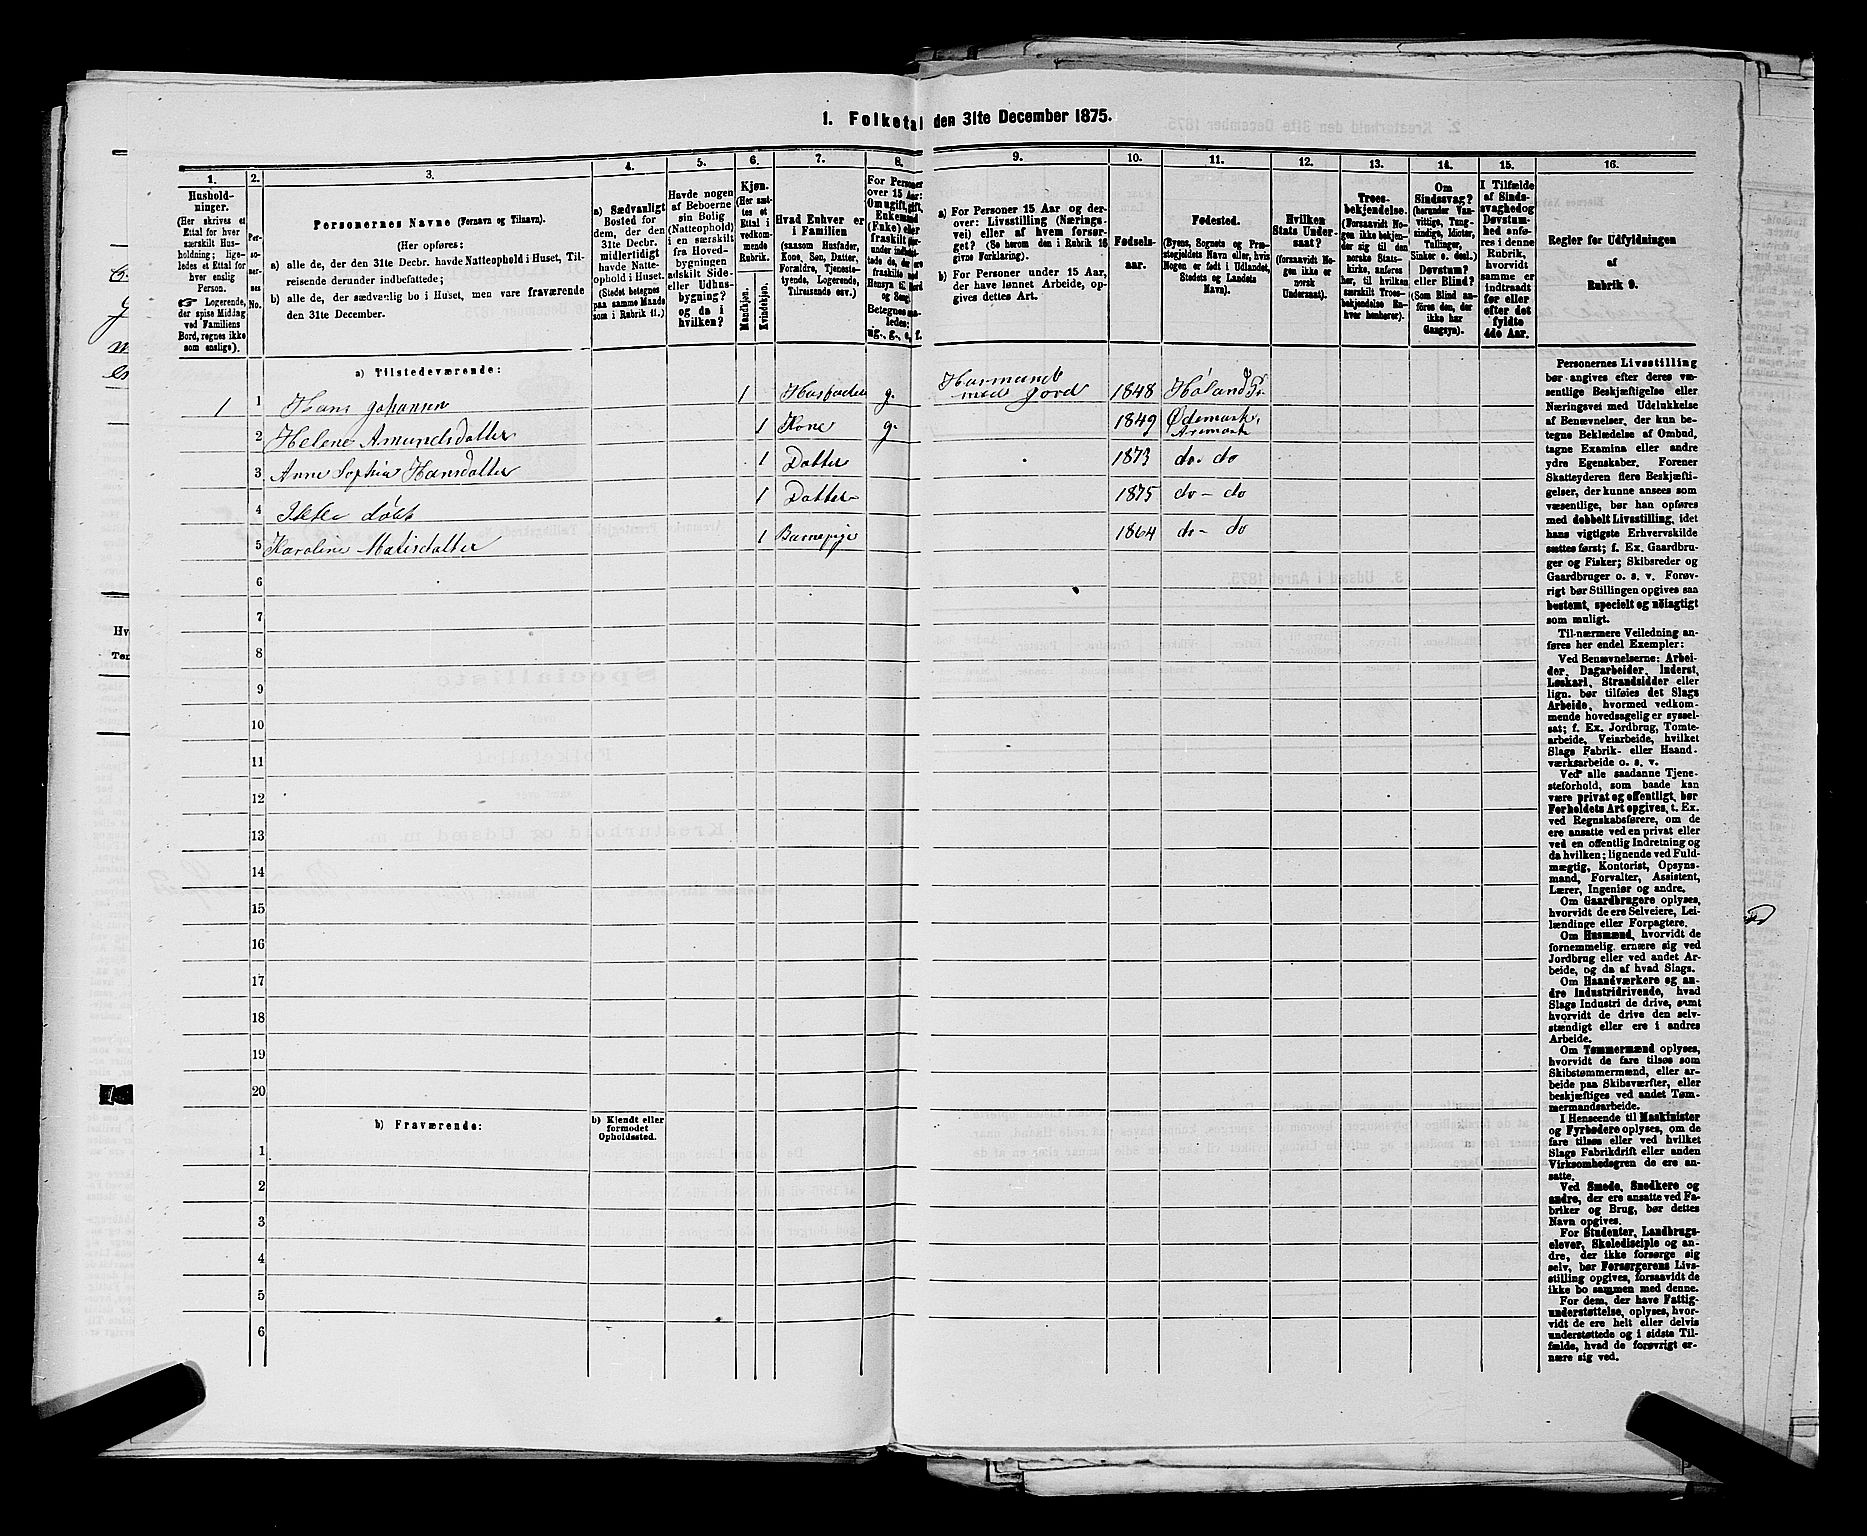 1. Folketal den 31te December 1875.
1.
2.
3.
4.
5.
6.
7.
8.
9.
10.
11.
12.
13.
14.
15.
16.
Hushold-
ninger.
(Her skrives et
Ettal for hver
særskilt Hus-
holdning; lige-
ledes et Ettal for
hver enslig
Person.
☞ Logerende,
der spise Middag
ved Familiens
Bord, regnes ikke
som enslige).
Per-
so-
ner-
nes
No.
Personernes Navne (Fornavn og Tilnavn).
(Her opføres:
a) alle de, der den 31te Decbr. havde Natteophold i Huset, Til-
reisende derunder indbefattede;
b) alle de, der sædvanlig bo i Huset, men vare fraværende
den 31te December.
a) Sædvanligt
Bosted for
dem, der den
31te Decbr.
midlertidigt
havde Natte-
ophold i Huset.
(Stedet betegnes
paa samme Maade
som i Rubrik 11.)
Havde nogen
af Beboerne
sin Bolig
(Natteophold)
i en særskilt
fra Hoved-
bygningen
adskilt Side-
eller Udhus-
bygning?
og da i
hvilken?
Kjøn.
(Her sæt-
tes et
Ettal i
vedkom-
mende
Rubrik.
Mandkjøn.
Kvindekjøn.
Hvad Enhver er
i Familien
(saasom Husfader,
Kone, Søn, Datter,
Forældre, Tjeneste-
tyende, Logerende,
Tilreisende osv.)
For Personer
over 15 Aar:
Om ugift, gift,
Enkemand
(Enke) eller
fraskilt
Betegnes saa-
ledes:
ug., g., e, f.
a) For Personer 15 Aar og der-
over: Livsstilling (Nærings-
vei) eller af hvem forsør-
get? (Se herom den i Rubrik 16
givne Forklaring).
b) For Personer under 15 Aar,
der have lønnet Arbeide, op-
gives dettes Art.
Fødsels-
aar.
Fødested.
(Byens, Sognets og Præ-
stegjeldets Navn eller, hvis
Nogen er født i Udlandet,
Stedets og Landets
Navn).
Hvilken
Stats Under-
saat?
(forsaavidt No-
gen ikke er
norsk
Undersaat).
Troes-
bekjendelse.
(Forsaavidt No-
gen ikke bekjen-
der sig til den
norske Stats-
kirke, anføres
her, til hvilken
særskilt Troes-
bekjendelse En-
hver henhører).
Om
Sindssvag?
(herunder Van-
vittige, Tung-
sindige, Idioter,
Tullinger,
Sinker o. desl.)
Døvstum?
eller Blind?
(Som Blind an-
føres den, der
ikke har
Gangsyn).
I Tilfælde
af Sinds-
svaghed og
Døvstum-
hed anfø-
res i denne
Rubrik,
hvorvidt
samme er
indtraadt
før eller
efter det
fyldte
4de Aar.
Regler for Udfyldningen
af
Rubrik 9.
a) Tilstedeværende:
1 1 Hans Johansen 1 Husfader g. Husmand med Jord 1848 Høland Pr.
2 Helene Amundsdatter 1 Kone g. 1849 Ødemark, Aremark
3 Anne Sophia Hansdatter 1 Datter 1873 do. do
4 1 Datter 1875 do - do
5 Karoline Matisdatter 1 Barnepige 1864 do - do
6
7
8
9
10
11
12
13
14
15
16
17
18
19
20
b) Fraværende:
b) Kjendt eller
formodet
Opholdssted.
1
2
3
4
5
6
Personernes Livsstilling
bør angives efter deres væ-
sentlige Beskjæftigelse eller
Næringsvei med Udelukkelse
af Benævnelser, der kun be-
tegne Beklædelse af Ombud,
tagne Examina eller andre
ydre Egenskaber. Forener
Skatteyderen flere Beskjæfti-
gelser, der kunne ansees som
væsentlige, bør han opføres
med dobbelt Livsstilling, idet
hans vigtigste Erhvervskilde
sættes først; f. Ex. Gaardbru-
ger og Fisker; Skibsreder og
Gaardbruger o. s. v. Forøv-
rigt bør Stillingen opgives saa
bestemt, specielt og nöiagtigt
som muligt.
Til nærmere Veiledning an-
føres her endel Exempler:
Ved Benævnelserne: Arbei-
der, Dagarbeider, Inderst,
Løskarl, Strandsidder eller
lign. bør tilføies det Slags
Arbeide, hvormed vedkom-
mende hovedsagelig er syssel-
sat; f. Ex. Jordbrug, Tomte-
arbeide, Veiarbeide, hvilket
Slags Fabrik- eller Haand-
værksarbeide o. s. v.
Ved alle saadanne Tjene-
steforhold, som baade kan
være privat og offentligt, bør
Forholdets Art opgives, t. Ex.
ved Regnskabsførere, om de
ere ansatte ved en privat eller
ved en offentlig Indretning og
da hvilken; lignende ved Fuld-
mægtig, Kontorist, Opsyns-
mand, Forvalter, Assistent,
Lærer, Ingeniør og andre.
Om Gaardbrugere oplyses,
hvorvidt de ere Selveiere, Lei-
lændinge eller Forpagtere.
Om Husmænd, hvorvidt de
fornemmelig ernære sig ved
Jordbrug eller ved andet Ar-
beide, og da af hvad Slags.
Om Haandværkere og an-
dre Industridrivende, hvad
Slags Industri de drive, samt
hvorvidt de drive den selv-
stændigt eller ere i andres
Arbeide.
Om Tømmermænd oplyses,
hvorvidt de fare tilsøs som
Skibstømmermænd, eller ar-
beide paa Skibsværfter, eller
beskjæftiges ved andet Tøm-
mermandsarbeide.
I Henseende til Maskinister
og Fyrbødere oplyses, om de
fare tilsøs eller ved hvilket
Slags Fabrikdrift eller anden
Virksomhedsgren de ere an-
satte.
Ved Smede, Snedkere og
andre, der ere ansatte ved Fa-
briker og Brug, bør dettes
Navn opgives.
For Studenter, Landbrugs-
elever, Skoledisciple og an-
dre, der ikke forsørge sig
selv, bør Forsørgerens Livs-
stilling opgives, forsaavidt de
ikke bo sammen med denne.
For dem, der have Fattig-
understøttelse, oplyses, hvor-
vidt de ere helt eller delvis
understøttede og i sidste Til-
fælde, hvad de forøvrigt er-
nære sig ved.